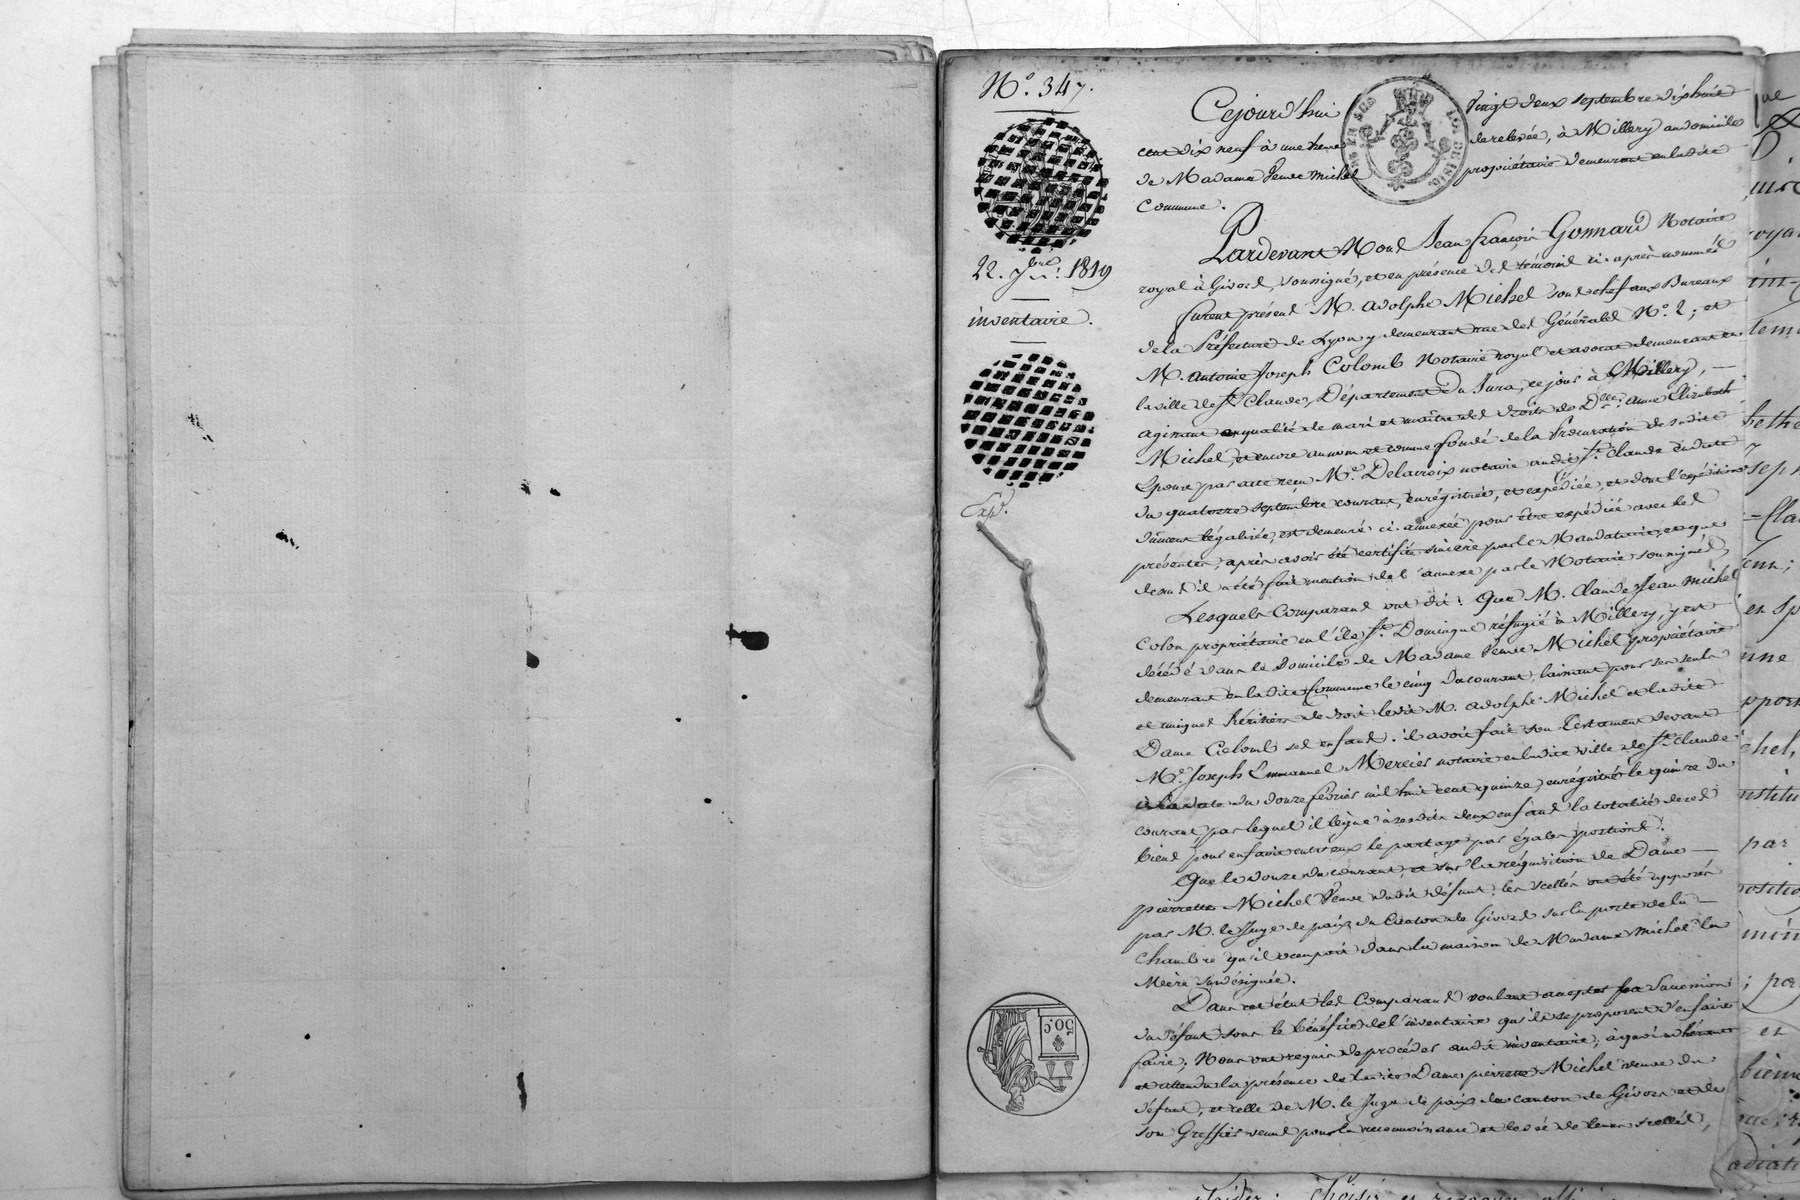 N.º 347.
22. 7bre. 1819
inventaire.
Exp.
Cejourd'hui vingt deux septembre dixhuit
cent dix neuf à une heure de relevée, à Millery au domicile
de Madame Veuve Michel propriétaire demeurant en ladite
Commune.
Pardevant Nous Jean françois Gonnard Notaire
royal à Givors, soussigné, et en présence des témoins ci-après nommés
furent présens M. adolphe Michel sous chef aux Bureaux
de la Préfecture de Lyon y demeurant rue des Générales N.º 2; et
M. antoine Joseph Colomb Notaire royal et avocat demeurant en
la ville de St. Claude, Département du Jura, ce jour à Millery,
agissant en qualité de mari et maître des droits de Dlle. anne Elizabeth
Michel, et encore au nom et comme fondé de la Procuration de sadite
Epouse par acte reçu Me. Delacroix notaire audit St. Claude en date
du quatorze septembre courant, enrégistrée, et expédiée, et dont l'expédition
dûment légalisée, est demeurée ci-annexée pour être expédiée avec les
présentes, après avoir été certifiée sincère par le Mandataire, et que
dessus il a été fait mention de l'annexe par le Notaire soussigné,
Lesquels Comparans ont dit: Que M. Claude Jean Michel
Colon propriétaire en l'île St. Domingue réfugié à Millery, y est
décédé dans le Domicile de Madame Veuve Michel propriétaire
demeurant en ladite Commune le cinq du courant, laissant pour ses seuls
et uniques héritiers de droit ledit M. adolphe Michel et ladite
Dame Colomb ses enfans. il avoit fait son Testament devant
Me. Joseph Emmanuel Mercier notaire en ladite ville de St. Claude
à la date du douze février mil huit cent quinze, enrégistré le quinze du
courant par lequel il lègue à sesdits deux enfans la totalité de ses
biens pour en faire entr'eux le partage par égales portions.
Que le douze du courant, et sur la réquisition de Dame
pierrette Michel Veuve dudit défunt, les scellés ont été apposés
par M. le Juge de paix du Canton de Givors sur la porte de la
chambre qu'il occupoit dans la maison de Madame Michel la
Mère susdésignée.
Dans cet état les Comparans voulant accepter sa Succession
du défunt sous le bénéfice de l'inventaire qu'ils se proposent d'en faire
faire; Nous ont requis de procéder audit inventaire; à quoi adhérant
et attendu la présence de ladite Dame pierrette Michel veuve du
défunt, et celle de M. le Juge de paix du canton de Givors et de
son Greffier venus pour la reconnoissance et levée de leurs scellés,